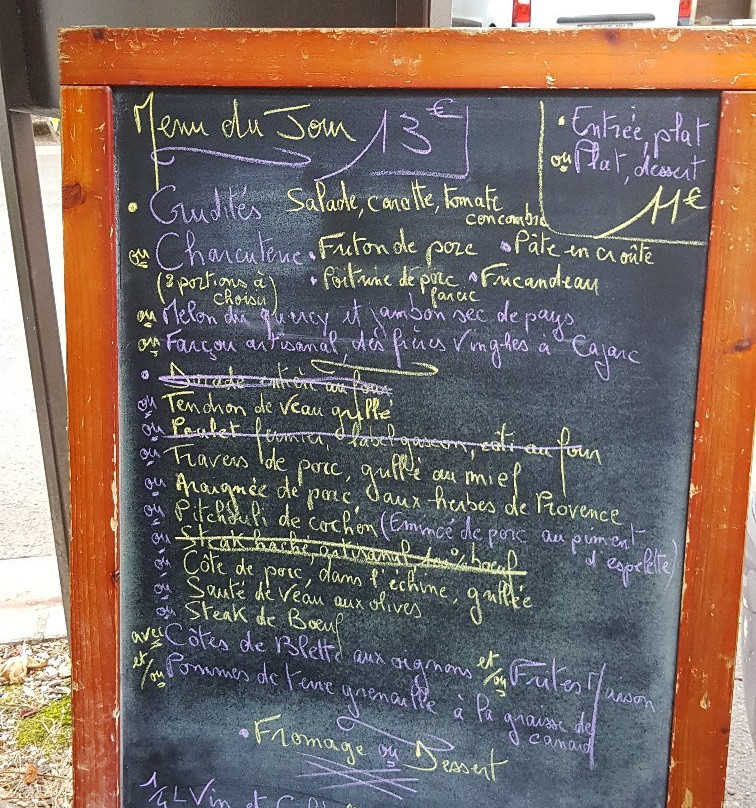 Menu du Jour 13€
• Entrée, plat
ou Plat, déssert
11€
• Crudités Salade, carotte, tomate
concombre
ou Charcuterie • Friton de porc • Pâte en croûte
(2 portions à • Poitrine de porc • Fricandeau
choisir) farcie
ou Melon du quercy et jambon sec de pays
ou Farçou artisanal, des frères Vinghes à Cajarc
• Dorade entière au four
ou Tendron de veau grillé
ou Poulet fermier, label gascon, rôti au four
ou Travers de porc, grillé au miel
ou Araignée de porc, aux herbes de Provence
ou Pitchouli de cochon (Emincé de porc au piment
d'espelette)
ou Steak haché, artisanal, 100% boeuf
ou Côte de porc, dans l'echine, grillée
ou Sauté de veau aux olives
ou Steak de Boeuf
avec Côtes de Blette aux oignons et/ou Frites Maison
et/ou Pommes de terre grenaille à la graisse de
canard
• Fromage ou Dessert
1/4 L Vin et